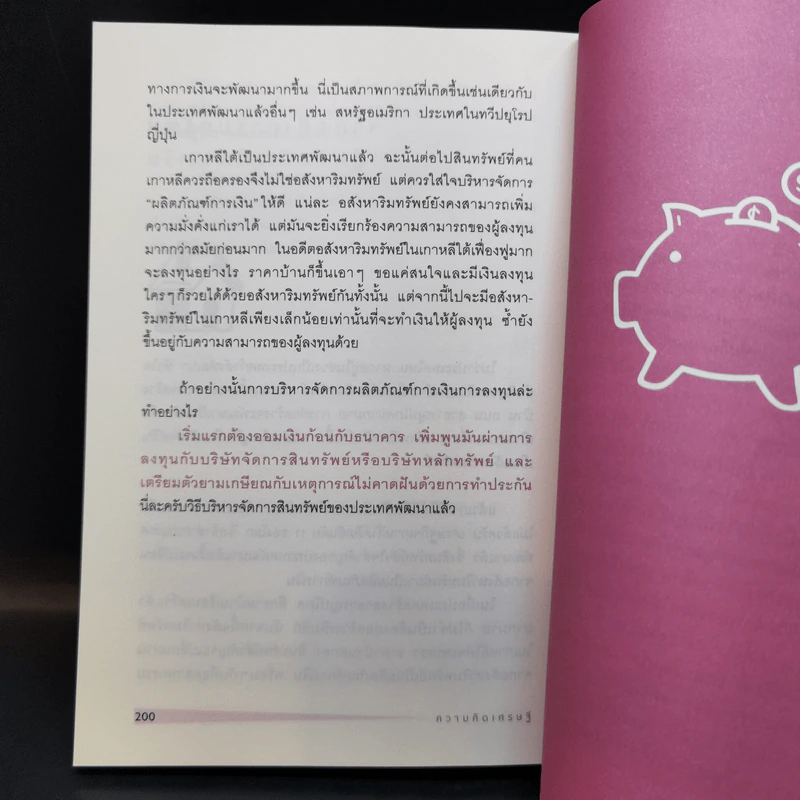 ทางการเงินจะพัฒนามากขึ้น นี่เป็นสภาพการณ์ที่เกิดขึ้นเช่นเดียวกับ
ในประเทศพัฒนาแล้วอื่นๆ เช่น สหรัฐอเมริกา ประเทศในทวีปยุโรป
ญี่ปุ่น
เกาหลีใต้เป็นประเทศพัฒนาแล้ว ฉะนั้นต่อไปสินทรัพย์ที่คน
เกาหลีควรถือครองจึงไม่ใช่อสังหาริมทรัพย์ แต่ควรใส่ใจบริหารจัดการ
“ผลิตภัณฑ์การเงิน” ให้ดี แน่ละ อสังหาริมทรัพย์ยังคงสามารถเพิ่ม
ความมั่งคั่งแก่เราได้ แต่มันจะยิ่งเรียกร้องความสามารถของผู้ลงทุน
มากกว่าสมัยก่อนมาก ในอดีตอสังหาริมทรัพย์ในเกาหลีใต้เฟื่องฟูมาก
จะลงทุนอย่างไร ราคาบ้านก็ขึ้นเอาๆ ขอแค่สนใจและมีเงินลงทุน
ใครๆ ก็รวยได้ด้วยอสังหาริมทรัพย์กันทั้งนั้น แต่จากนี้ไปจะมีอสังหา-
ริมทรัพย์ในเกาหลีเพียงเล็กน้อยเท่านั้นที่จะทำเงินให้ผู้ลงทุน ซ้ำยัง
ขึ้นอยู่กับความสามารถของผู้ลงทุนด้วย
ถ้าอย่างนั้นการบริหารจัดการผลิตภัณฑ์การเงินการลงทุนล่ะ
ทำอย่างไร
เริ่มแรกต้องออมเงินก้อนกับธนาคาร เพิ่มพูนมันผ่านการ
ลงทุนกับบริษัทจัดการสินทรัพย์หรือบริษัทหลักทรัพย์ และ
เตรียมตัวยามเกษียณกับเหตุการณ์ไม่คาดฝันด้วยการทำประกัน
นี่ละครับวิธีบริหารจัดการสินทรัพย์ของประเทศพัฒนาแล้ว
200 ความคิดเศรษฐี